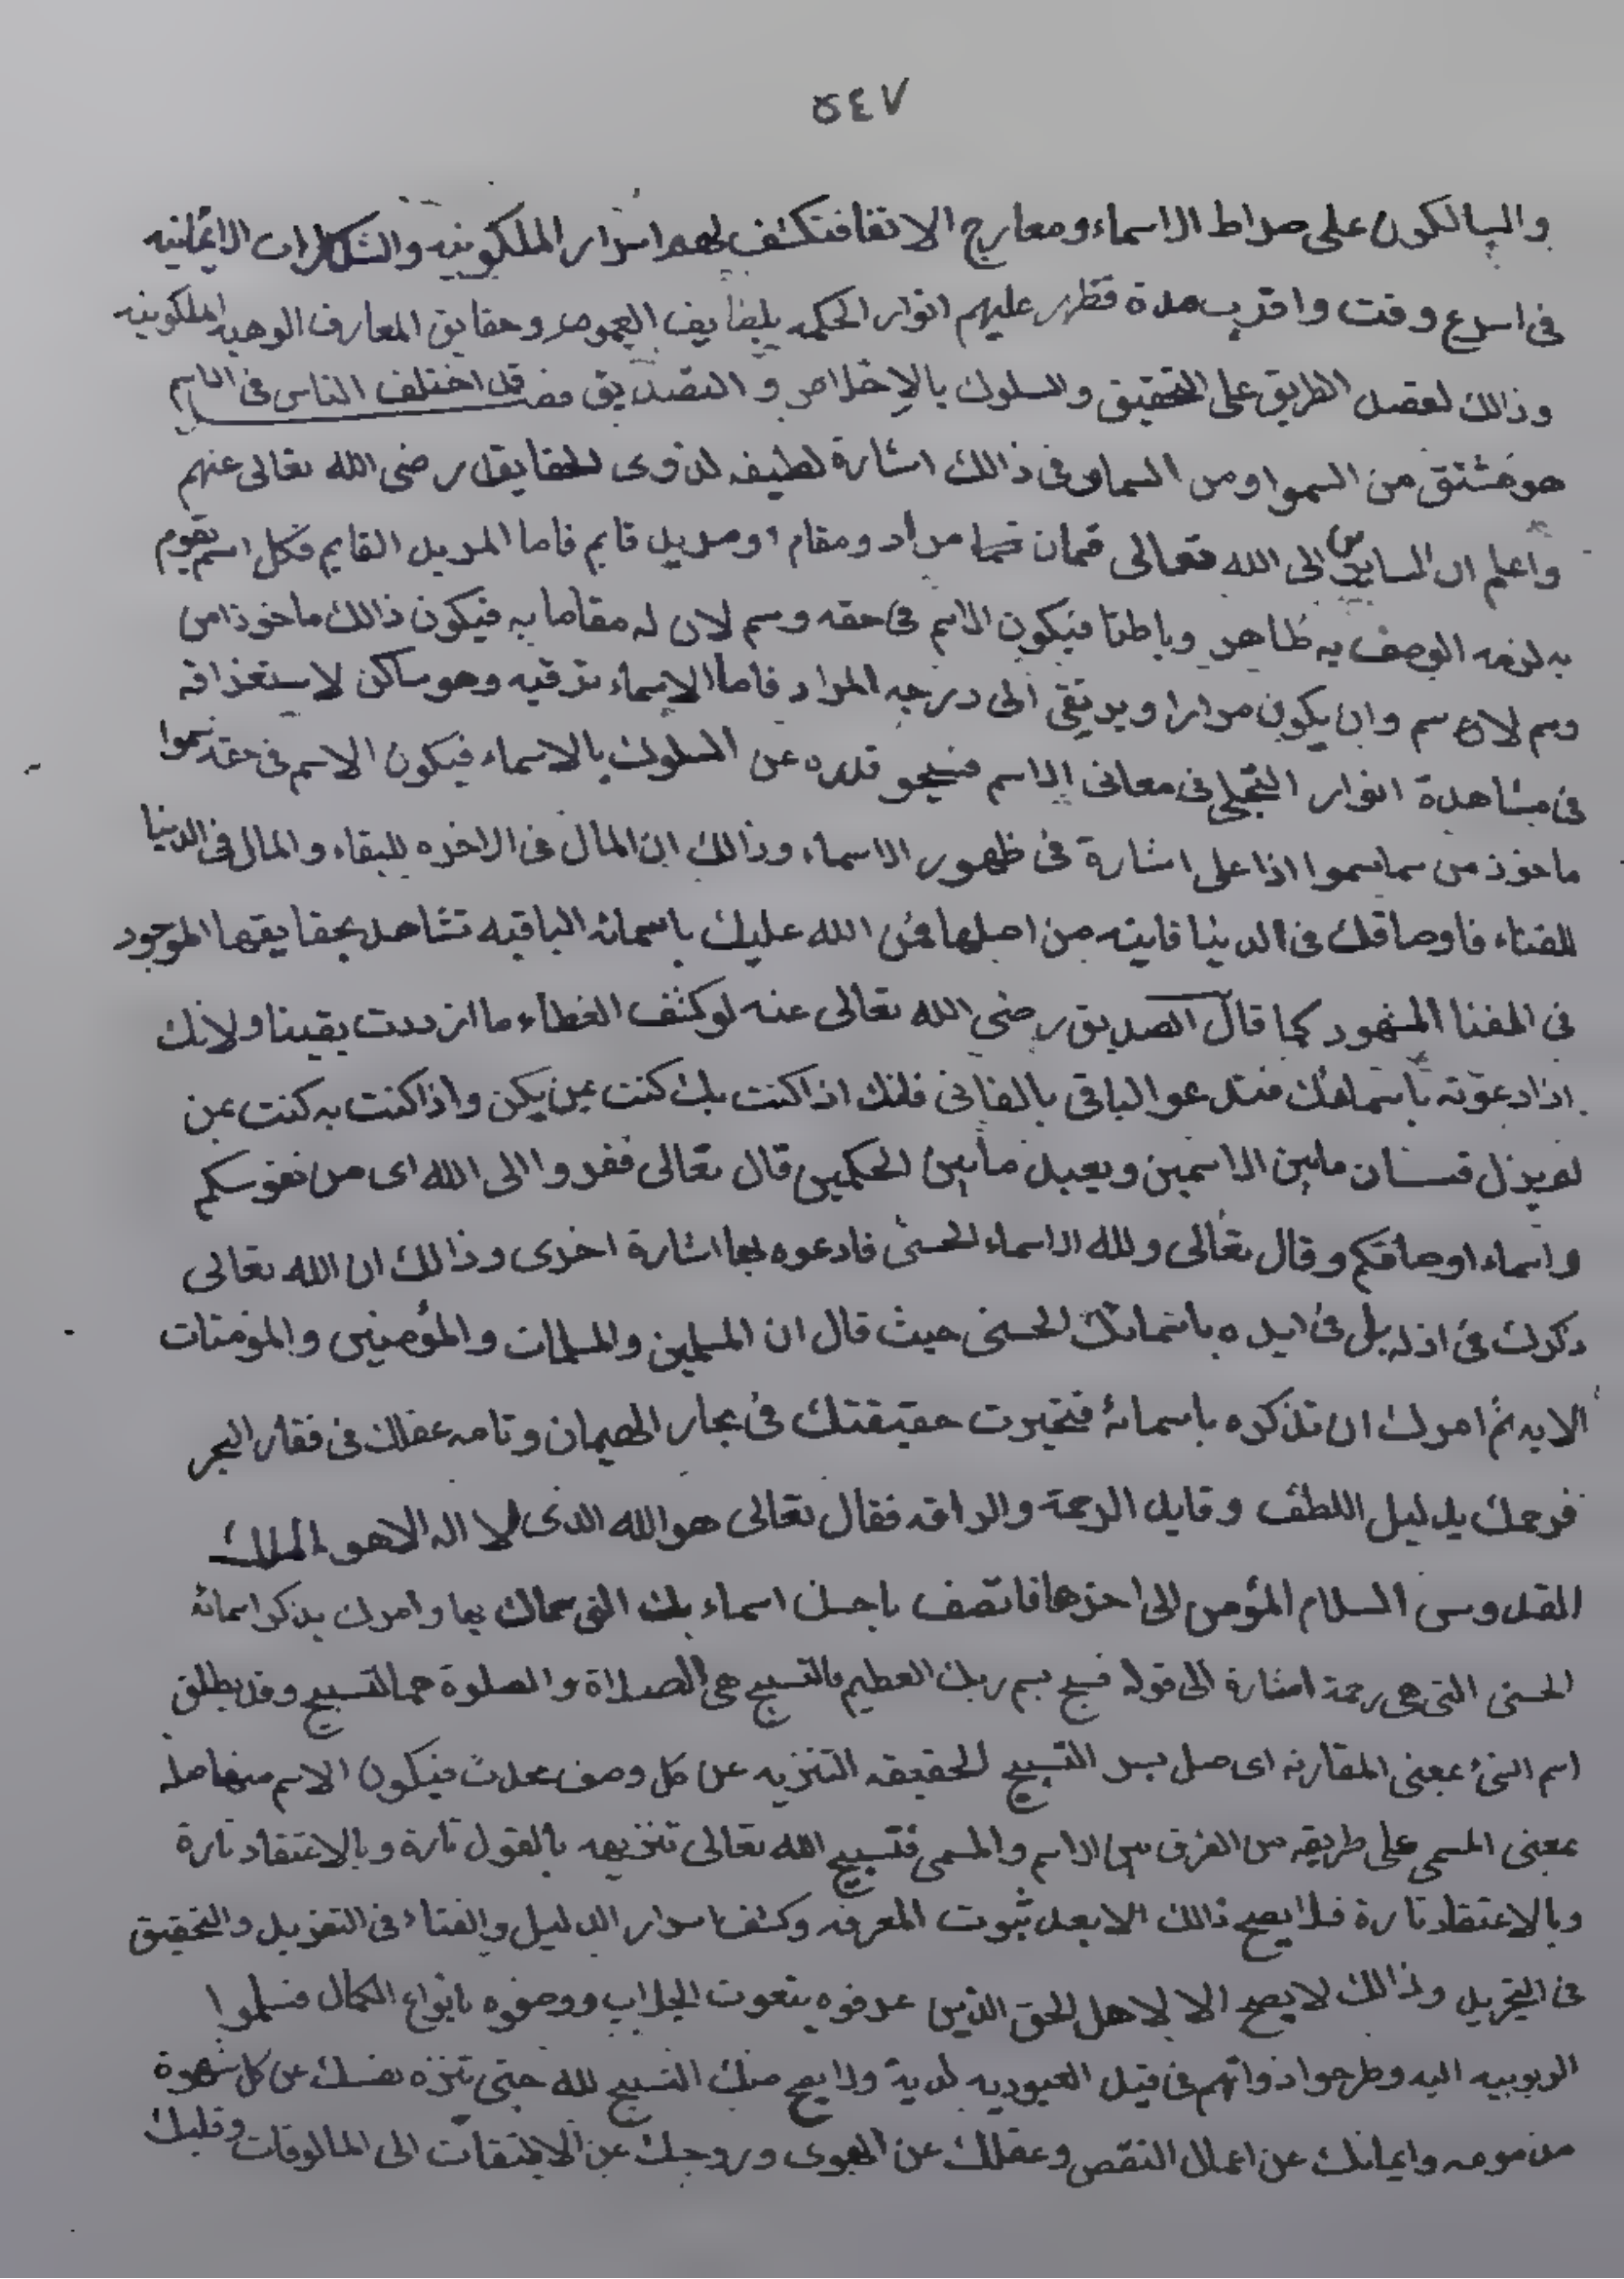 ٥٤٧
والسالكون على صراط الاسماء ومعارج الارتقا فتكشف لهم اسرار الملكوتيه والشكلات الايمانيه
فى اسرع وقت واقرب مدة فتظهر عليهم انوار الحكمه بلطايف وحقايق المعارف الوهبيه الملكوتيه
وذالك لقصد الطريق على التحقيق والسلوك بالاخلاص و التصديق فصل قد اختلف الناس فى الاسم
هو مشتق من السموا ومن السماو فى ذالك اشارة لطيفه لذوى الحقايق رضى الله تعالى عنهم
واعلم ان السايرين الى الله تعالى قمان مراد ومقام او مريد قايم فاما المريد القايم فكل اسم يقوم
به لزمه الوصف به ظاهر وباطنا فيكون الاسم فى حقه وسم لان له مقاما به فيكون ذالك ماخوذا من
وسم لان سم وان يكون مرارا ويرتقى الى درجه المراد فاما الاسماء ترقيه وهو ساكن لاستغذاقه
فى مشاهدة انوار التجلى فى معانى الاسم قدره عن السلوك بالاسماء فيكون الاسم فى حقه سموا
ماخوذ من سما سموا اذا على اشارة فى ظهور الاسماء وذالك ان المال فى الاخره للبقاء والمال فى الدنيا
للفناء فاوصافك فى الدنيا فانيته من اصلها فمن الله عليك باسمائه الباقيه تشاهد بحقايقها الموجود
فى المفنا المشهود كما قال الصديق رضى الله تعالى عنه لو كشف الغطاء ما ازددت يقينا ولانك
اذا دعوته باسمائك فتدعو الباقى بالفانى فانك اذا كنت بك كنت بمن يكن واذا كنت به كنت بمن
لم يزل فستان مابين الاسمين وبعيد مابين الحكمين قال تعالى ففروا الى الله اى من نفوسكم
واسماء اوصافكم وقال تعالى ولله الاسماء الحسنى فادعوه بها اشارة اخرى وذالك ان الله تعالى
ذكرك فى ازله بل فى ابده باسمائك الحسنى حيث قال ان المسلمين والمسلمات والمؤمنين والمؤمنات
الايه ثم امرك ان تذكره باسمائه فتحيرت حقيقتك فى بحار الهيمان وتامه عقلك فى فقار البحر
فرحمك بدليل اللطف وقايد الرحمة والرافه فقال تعالى هو الله الذى لا اله الا هو الملك
القدوس السلام المؤمن الى اخرها فاتصف باحسن اسماء بك التى سماك بها وامرك بذكر اسمائه
الحسنى التى هى رحمة اشارة الى قوله فسبح بسم ربك العظيم فالتسبيح هى الصلاة والصلوة هى التسبيح وقد يطلق
اسم الشئ بمعنى المقارنه اى صل بسر التسبيح لحقيقه التنزيه عن كل وصف محدث فيكون الاسم منهاهنا
بمعنى المسمى على طريقه من الفرق بين الاسم والمسمى فتسبيح الله تعالى تنزيهه بالقول تارة وبالاعتقاد تارة
وبالاعتقاد تارة فلا يصح ذالك الا بعد ثبوت المعرفه وكشف اسرار الدليل والفناء فى التفريد والتحقيق
فى التجريد وذالك لا يصح الا لاهل الحق الذين عرفوه بنعوت الجلاب ووصفوه بانواع الكمال فسلموا
الربوبيه اليه وطرحوا ذواتهم فى قيد العبوديه لديه ولا يصح منك التسبيح لله حتى تنزه نفسك عن كل شهوة
مذمومه وايمانك عن اعمال النقص وعقلك عن الهوى وروحك عن الالتفات الى المالوفات وقلبك